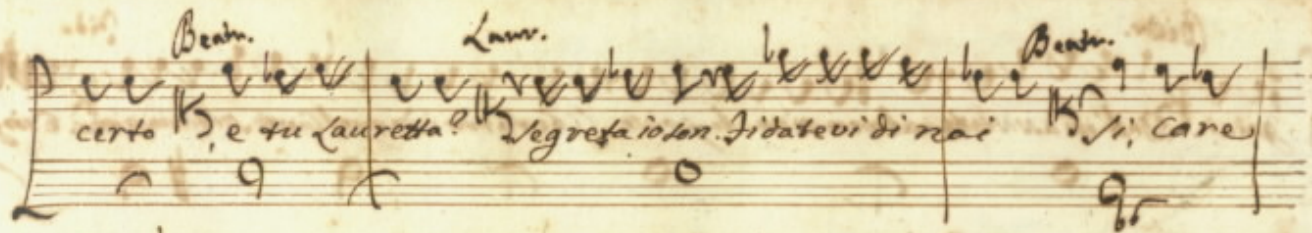 Beatr. Laur. Beatr.
certo, e tu Lauretta? Segreta io son. Fidatevi di noi Si, care